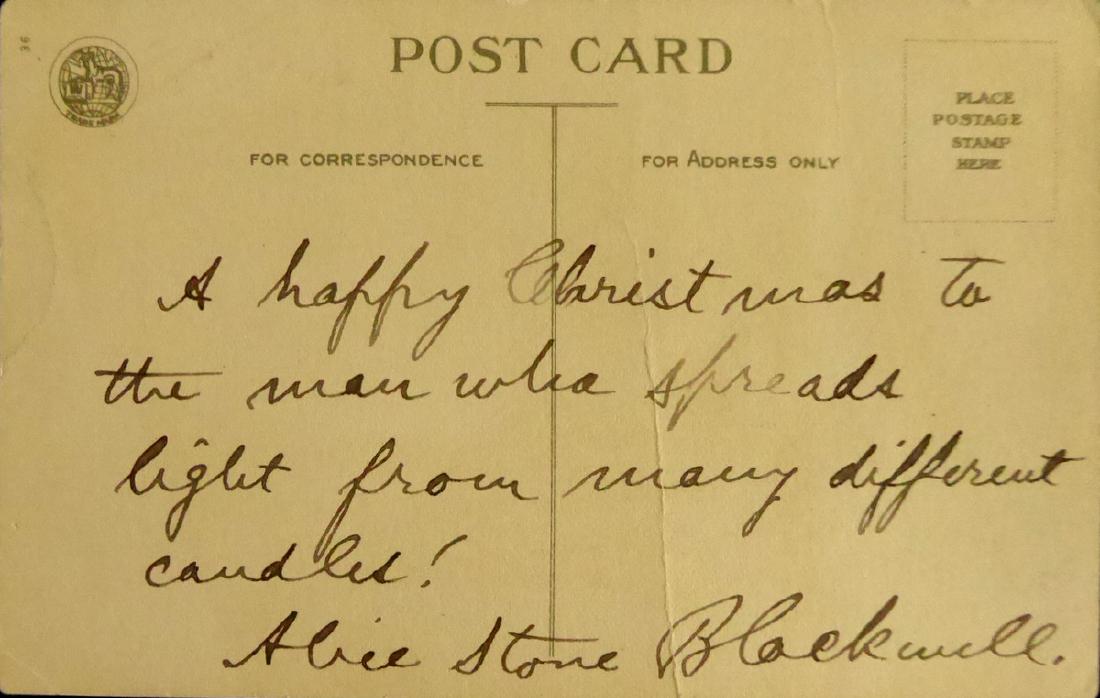 36
TRADE MARK
POST CARD
FOR CORRESPONDENCE
FOR ADDRESS ONLY
PLACE
POSTAGE
STAMP
HERE
A happy Christmas to
the man who spreads
light from many different
candles!
Alice Stone Blackwell.